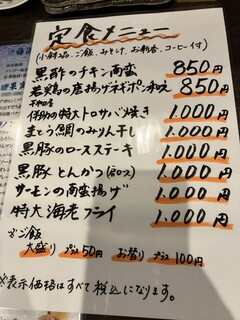 定食メニュー
(小鉢2品、ご飯、みそ汁、お新香、コーヒー付)
黒酢のチキン南蛮 850円
若鶏の唐揚げネギポン和え 850円
特大トロサバ焼き 1.000円
みりん干し 1.000円
黒豚のロースステーキ 1.000円
黒豚とんかつ(ロース) 1.000円
サーモンの南蛮揚げ 1.000円
特大海老フライ 1.000円
※ご飯
大盛り プラス50円 お替り プラス100円
※表示価格はすべて税込になります。